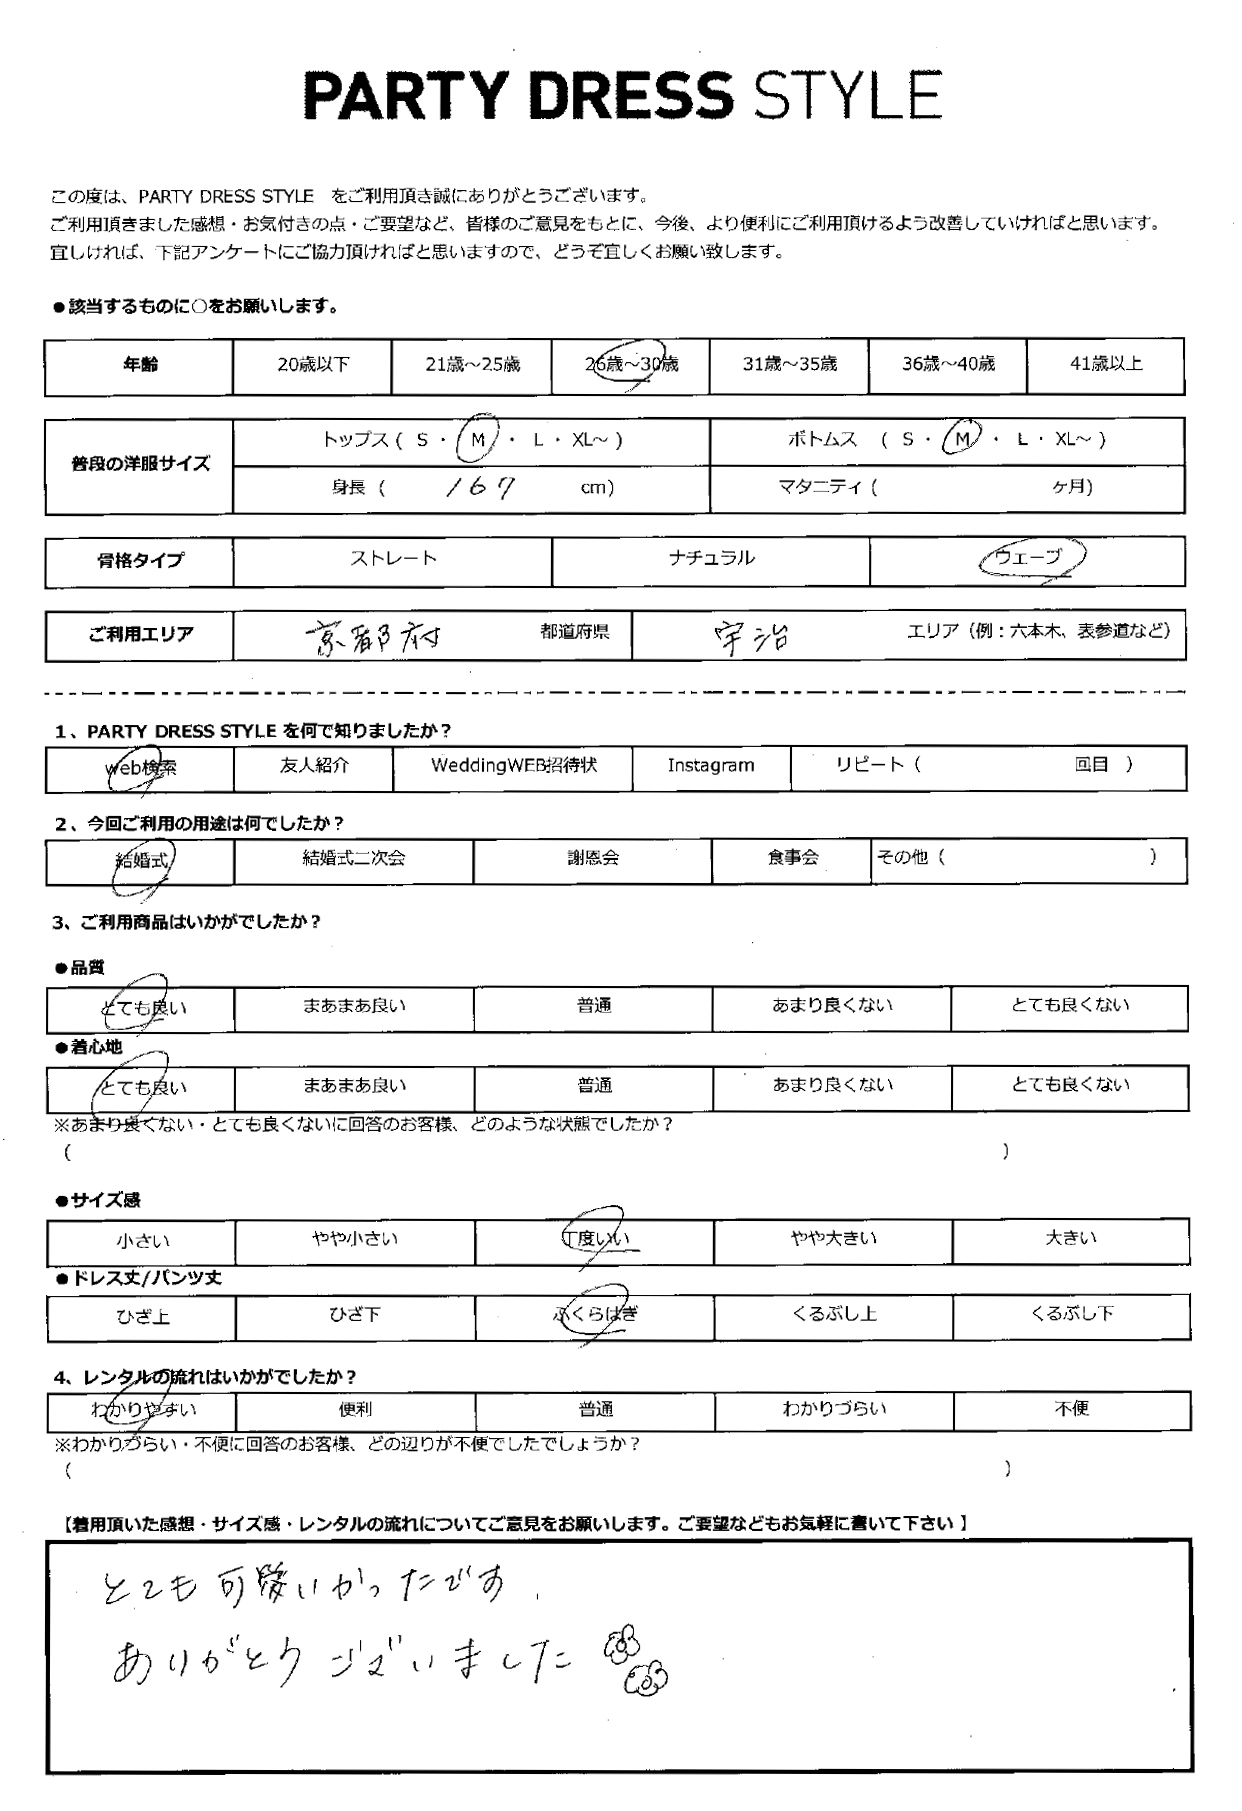 PARTY DRESS STYLE
この度は、PARTY DRESS STYLE をご利用頂き誠にありがとうございます。
ご利用頂きました感想・お気付きの点・ご要望など、皆様のご意見をもとに、今後、より便利にご利用頂けるよう改善していければと思います。
宜しければ、下記アンケートにご協力頂ければと思いますので、どうぞ宜しくお願い致します。
●該当するものに○をお願いします。
年齢 20歳以下 21歳～25歳 26歳～30歳 31歳～35歳 36歳～40歳 41歳以上
普段の洋服サイズ
トップス ( S ・ M ・ L ・ XL～ ) ボトムス ( S ・ M ・ L ・ XL～ )
身長 ( 167 cm) マタニティ ( ヶ月)
骨格タイプ ストレート ナチュラル ウェーブ
ご利用エリア 京都府 都道府県 宇治 エリア（例：六本木、表参道など）
1、PARTY DRESS STYLE を何で知りましたか？
web検索 友人紹介 WeddingWEB招待状 Instagram リピート ( 回目 )
2、今回ご利用の用途は何でしたか？
結婚式 結婚式二次会 謝恩会 食事会 その他 ( )
3、ご利用商品はいかがでしたか？
●品質
とても良い まあまあ良い 普通 あまり良くない とても良くない
●着心地
とても良い まあまあ良い 普通 あまり良くない とても良くない
※あまり良くない・とても良くないに回答のお客様、どのような状態でしたか？
( )
●サイズ感
小さい やや小さい 丁度いい やや大きい 大きい
●ドレス丈/パンツ丈
ひざ上 ひざ下 ふくらはぎ くるぶし上 くるぶし下
4、レンタルの流れはいかがでしたか？
わかりやすい 便利 普通 わかりづらい 不便
※わかりづらい・不便に回答のお客様、どの辺りが不便でしたでしょうか？
( )
【着用頂いた感想・サイズ感・レンタルの流れについてご意見をお願いします。ご要望などもお気軽に書いて下さい 】
とても可愛いかったです.
ありがとうございました